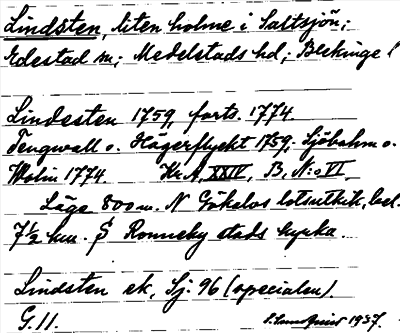 Lindsten, liten holme i Saltsjön;
Edestad sn; Medelstads hd; Blekinge l
Lindesten 1759, forts. 1774.
Tengwall o. Hägerflycht 1759; Sjöbohm o.
Wolin 1774. Kr. A. XXIV, B, N:o VI
Läge 800 m. N Gökalvs lotsutkik, bel.
7½ km. S Ronneby stads kyrka.
Lindsten ek, Sj. 96 (specialen).
G. 11. S. Sundquist 1937.